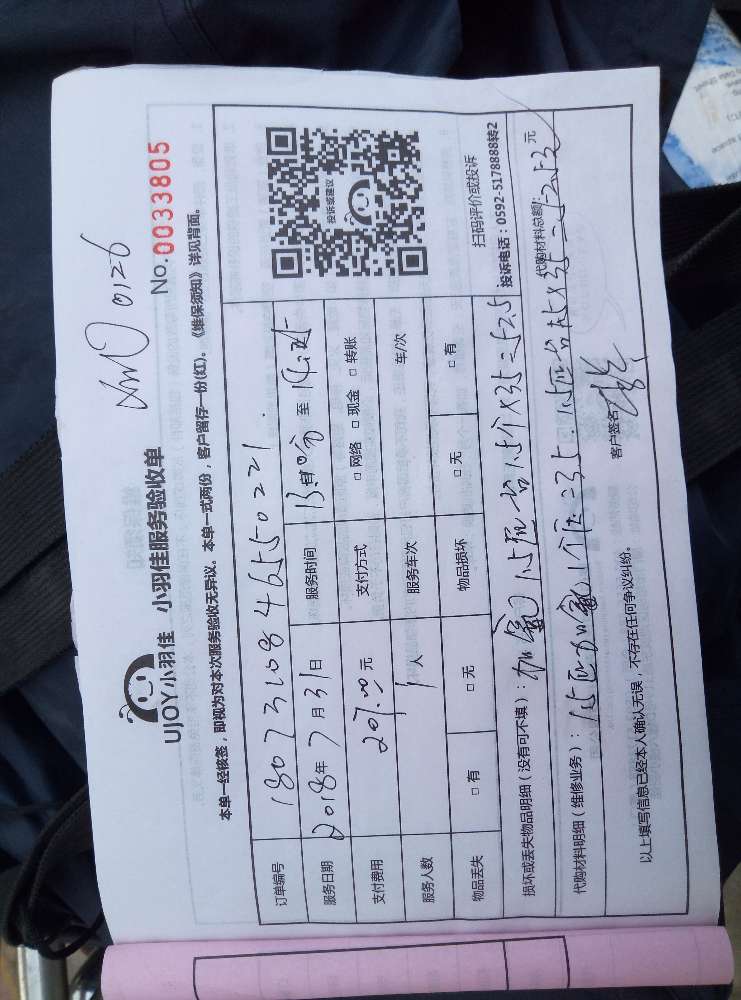 XM0126
No.0033805
UJOY小羽佳 小羽佳服务验收单
本单一经核签，即视为对本次服务验收无异议。本单一式两份，客户留存一份(红)。《维保须知》详见背面。
订单编号 1807310846550221
服务日期 2018年7月31日 服务时间 至
支付费用 207.00元 支付方式 □网络 □现金 □转账
服务人数 1人 服务车次 车/次
物品丢失 □有 □无 物品损坏 □无 □有
投诉或建议
扫码评价或投诉
投诉电话：0592-5178888转2
损坏或丢失物品明细（没有可不填）：加氟1.5匹 1.5个×35=52.5
代购材料明细（维修业务）：1.5匹加氟1个压=35. 1.5匹 ×35= 代购材料总额： 元
以上填写信息已经本人确认无误，不存在任何争议纠纷。 客户签名：